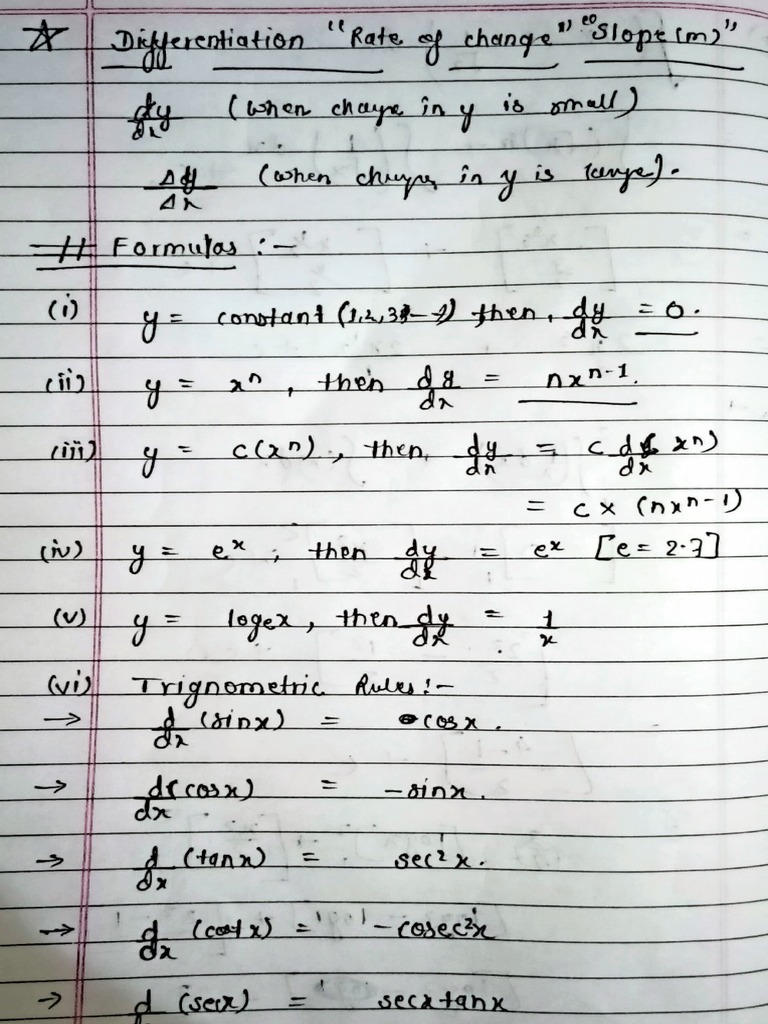 ☆ Differentiation "Rate of change" "Slope(m)"
dy/dx (when change in y is small)
Δy/Δx (when changes in y is large).
# Formulas :-
(i) y = constant (1,2,3---) then, dy/dx = 0.
(ii) y = xⁿ, then dy/dx = nxⁿ⁻¹.
(iii) y = c(xⁿ), then, dy/dx = c d/dx (xⁿ)
= c × (nxⁿ⁻¹)
(iv) y = eˣ, then dy/dx = eˣ [e = 2.7]
(v) y = logex, then dy/dx = 1/x
(vi) Trignometric Rules:-
→ d/dx (sinx) = cosx.
→ d/dx (cosx) = -sinx.
→ d/dx (tanx) = sec²x.
→ d/dx (cotx) = -cosec²x
→ d/dx (secx) = secxtanx